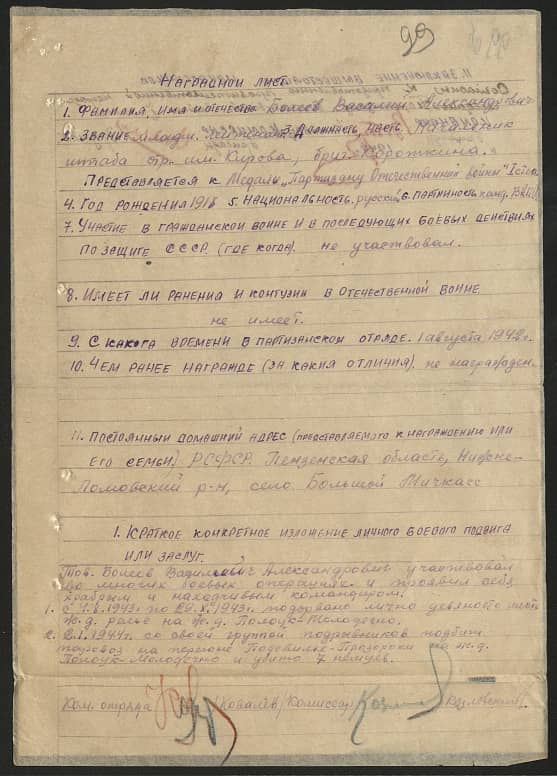 99
Наградной лист.
1. Фамилия, Имя и отчество Болеев Василий Александрович
2. Звание 3. Должность, часть Начальник
штаба отр. им. Кирова, бриг. Короткина.
Представляется к Медаль „Партизану Отечественной войны" I степ.
4. Год рождения 1918 5. Национальность. русский 6. Партийность. канд. ВКП(б)
7. Участие в гражданской войне и в последующих боевых действиях
по защите СССР (где когда). не участвовал.
8. Имеет ли ранения и контузии в Отечественной войне
не имеет.
9. С какога времени в партизанском отряде. 1 августа 1942 г.
10. Чем ранее награжде (за какия отличия). не награжден.
11. Постоянный домашний адрес (представляемого к награждению или
его семьи) РСФСР. Пензенская область, Нижне-
Ломовский р-н, село Большой Мичкасс
1. Краткое конкретное изложение личного боевого подвига
или заслуг.
Тов. Болеев Александрович участвовал
во многих боевых операциях и проявил себя
храбрым и находчивым командиром.
1. 1943 г. по 29.X.1943 г. подорвано лично
ж.д. рельс на ж.д. Полоцк-Молодечно.
2. 2.I.1944 г. со своей группой подрывников подбит
паровоз на перегоне Подсвилье-Прозороки на ж.д.
Полоцк-Молодечно и убито 7 немцев.
Ком. отряда /Ковалев/ Комиссар